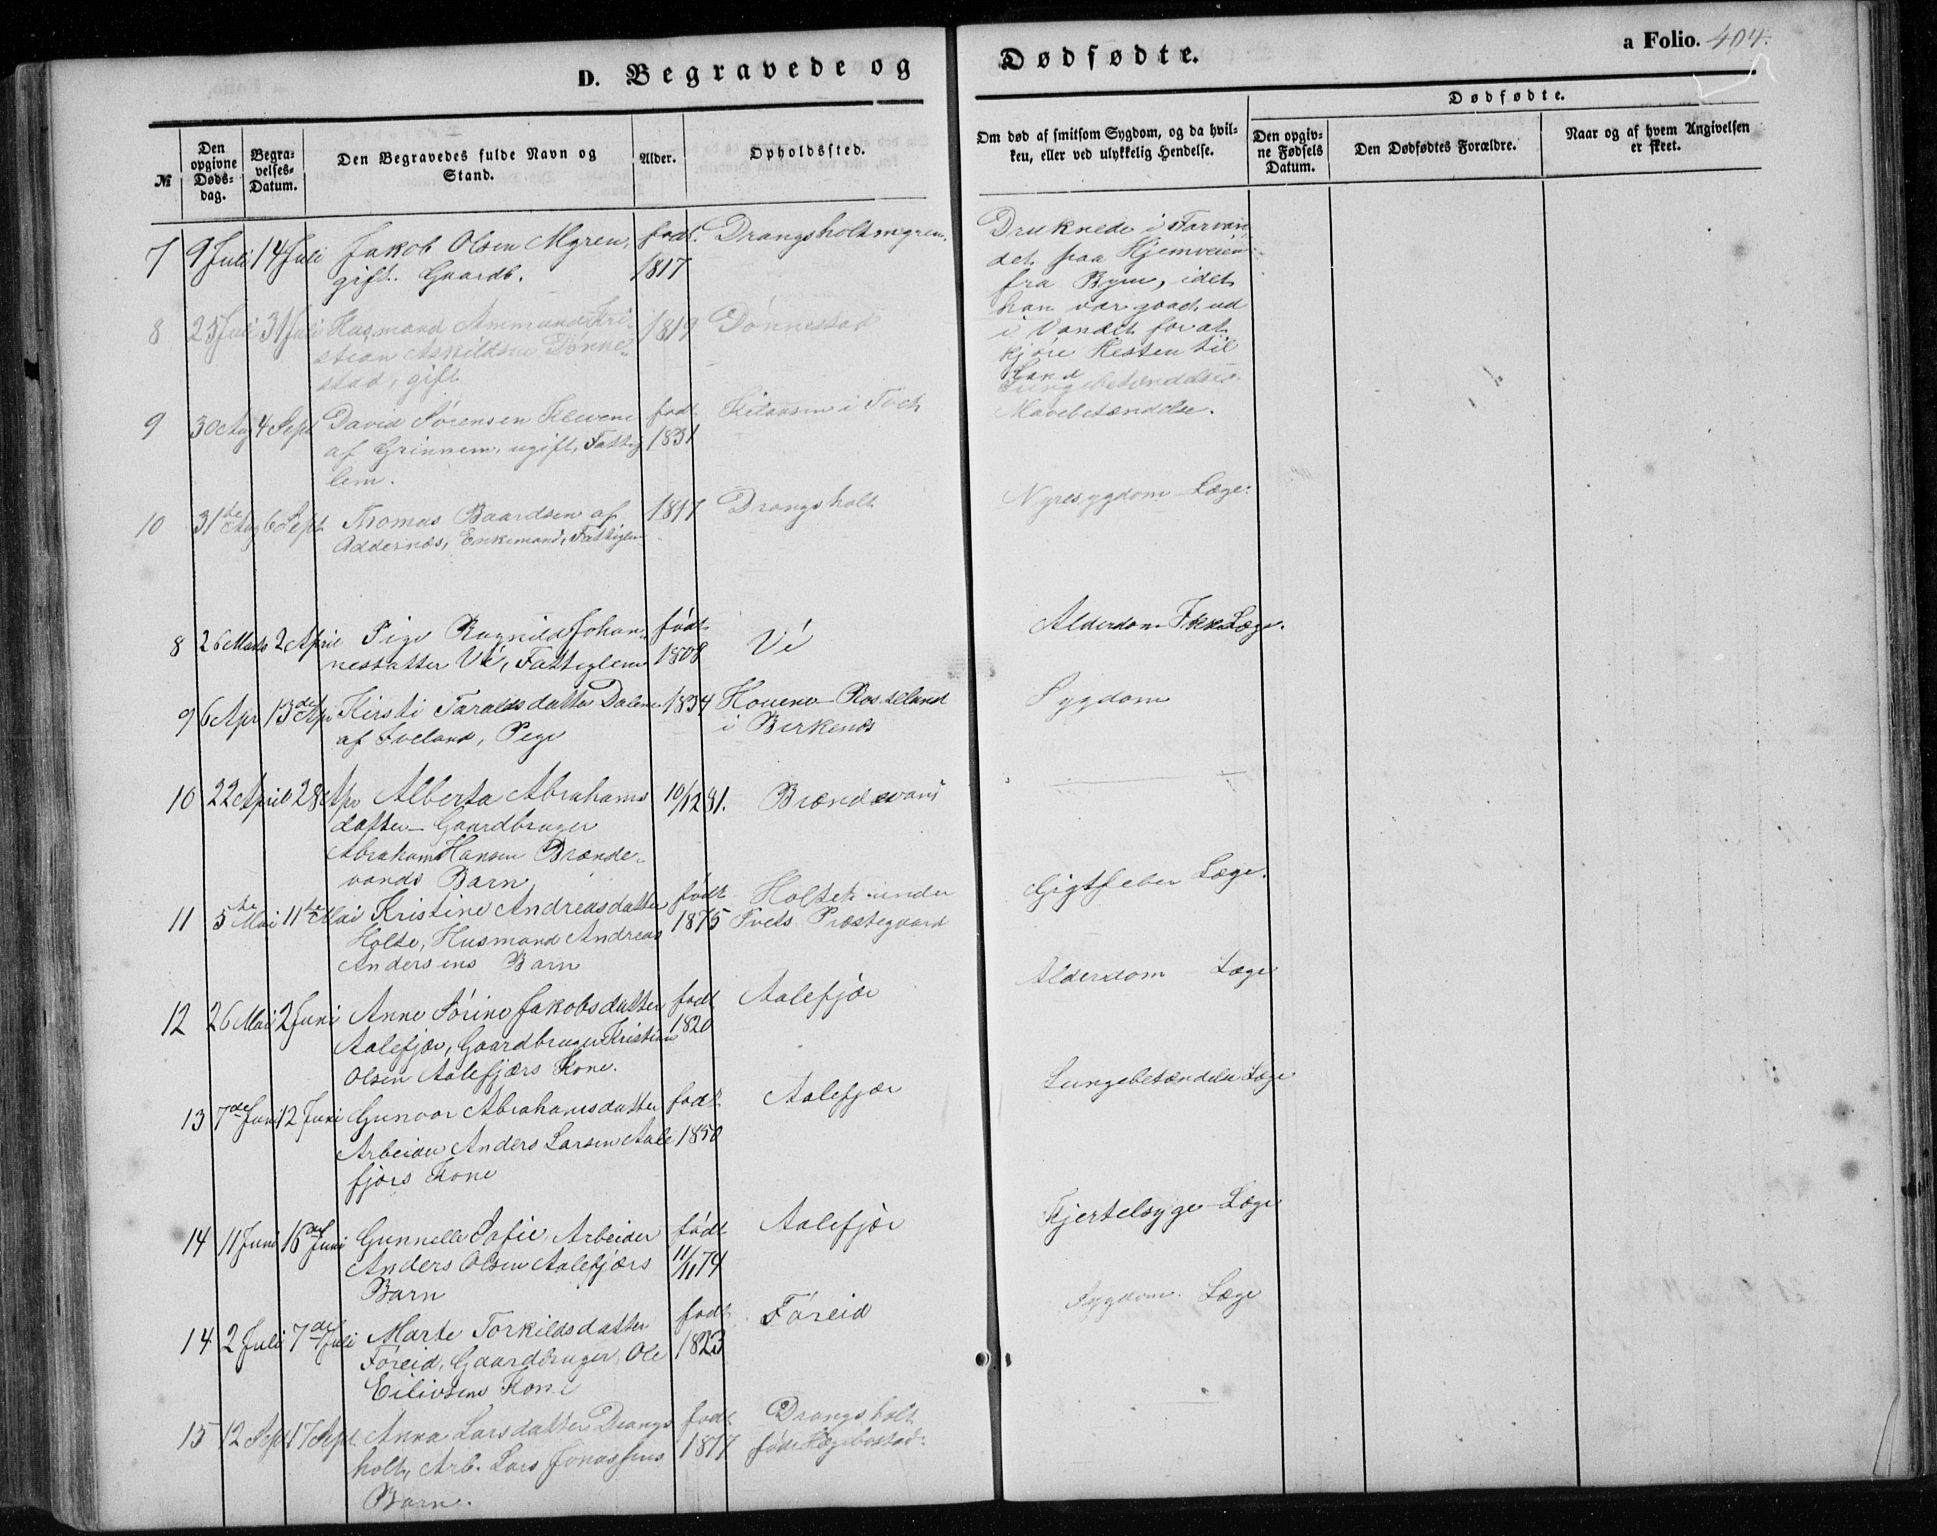 D. Begravede og Dødfødte.
a Folio. 404.
№
Den opgivne Døds-dag.
Begra-velses-Datum.
Den Begravedes fulde Navn og Stand.
Alder.
Opholdssted.
Om død af smitsom Sygdom, og da hvil-ken, eller ved ulykkelig Hendelse.
Dødfødte.
Den opgiv-ne Fødsels Datum.
Den Dødfødtes Forældre.
Naar og af hvem Angivelsen er skeet.
7 9 Juli 14 Juli Jakob Olsen Myren, født. Drangsholtmyren.
gift. Gaardb. 1817
Druknede i Farvan-
det paa Hjemveien
fra Byen, idet
han var gaaet ud
i Vandet for at
kjøre Hesten til
Land
8 25 Juli 31 Juli Husmand Ammund Kri- 1819 Dønnestad
stian Askildsen Dønne-
stad, gift
Lungebetændelse.
9 30 Aug 4 Sept David Sørensen Klevene født Kilaasen i Tvet Mavebetændelse.
af Grinnem, ugift, Fattig 1831
lem.
10 31te Aug 6 Sept Thomas Baardsen af 1817 Drangsholt Nyresygdom - Læge.
Oddernæs, Enkemand, Fattiglem
8 26 Marts 2 April Pige Ragnild Johan- født Vé Alderdom Ikke Læge.
nesdatter Vé, Fattiglem 1808
9 6 Apr 13de Apr Kirsti Taraldsdatter Dalene 1834 Houene Rosseland Sygdom
af Iveland, Pige i Birkenæs
10 22 April 28 Apr Alberta Abrahams 10/12 81. Brændevand
datter - Gaardbruger
Abraham Hansen Brænde-
vands Barn
11 5te Mai 11te Mai Kristine Andreasdatter født Holtet under Gigtfeber Læge.
Holte, Husmand Andreas 1875 Tvets Præstegaard
Andersens Barn
12 26 Mai 2 Juni Anne Sørine Jakobsdatter født Aalefjær Alderdom - Læge
Aalefjær, Gaardbruger Kristian 1820
Olsen Aalefjærs Kone.
13 7de Juni 12 Juni Gunvor Abrahamsdatter født Aalefjær Lungebetændelse Læge
Arbeider Anders Larsen Aale 1850
fjærs Kone
14 11 Juni 16de Juni Gunnella Sofie, Arbeider født Aalefjær Kjertelsyge - Læge
Anders Olsen Aalefjærs 11/11 74
Barn
14 2 Juli 7de Juli Marte Torkildsdatter født Føreid Sygdom. Læge
Føreid, Gaardbruger Ole 1823
Eilivsens Kone
15 12 Sept 17 Sept. Anna Larsdatter Drangs født Drangsholt
holt, Arb. Lars Jonassens 1877 født Hægebostad.
Barn.